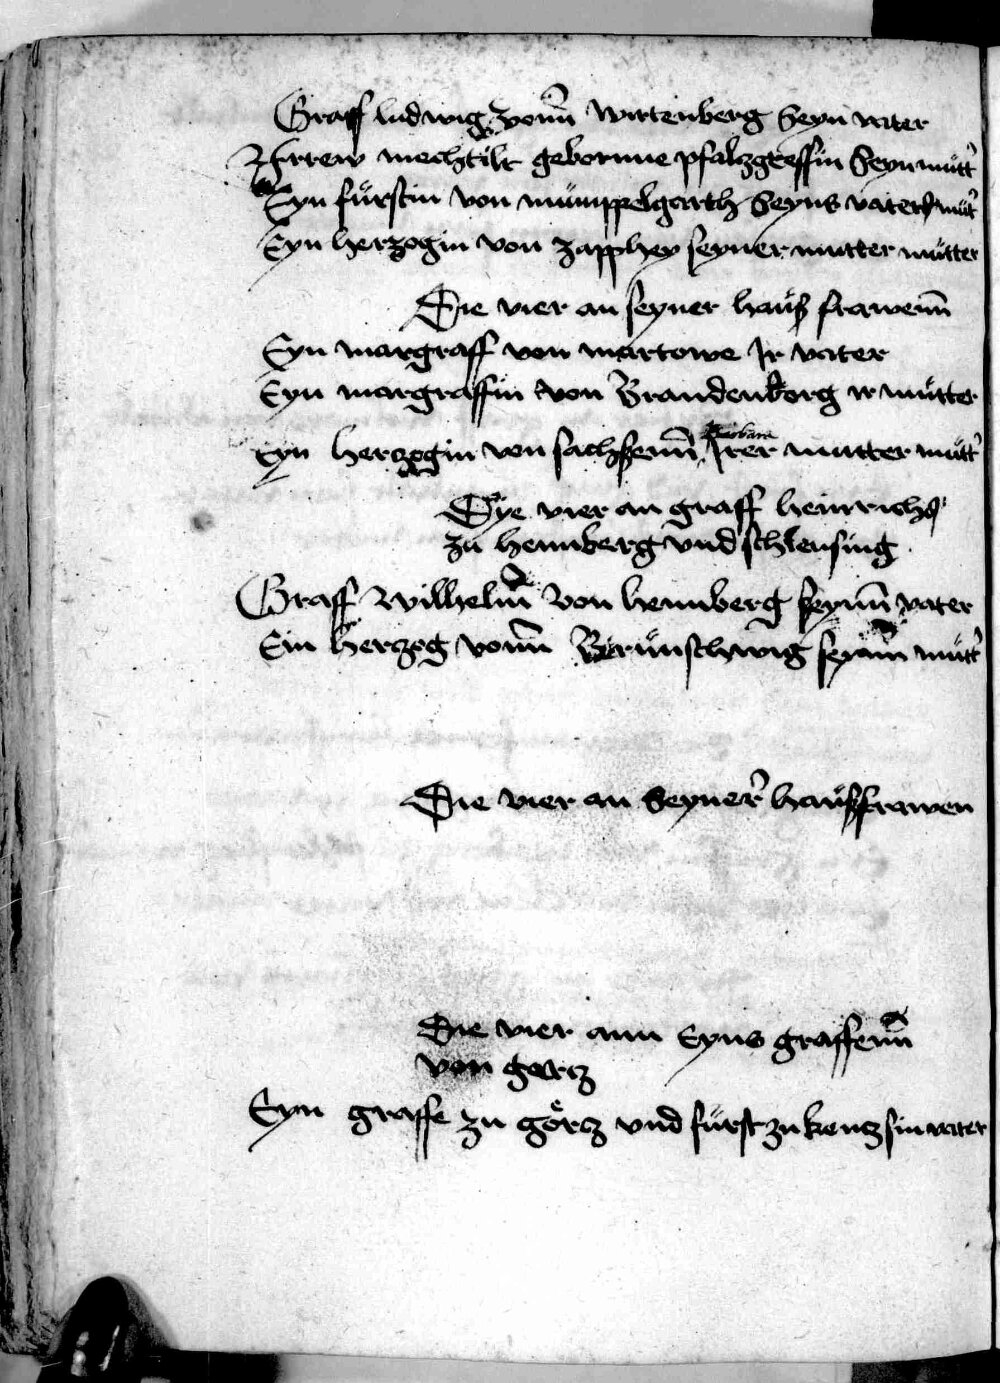 Graff ludwig vonn wirtenberg seyn vater
Frrew mechtilt gebornne pfalzgreffin seyn mutt
Eyn fürstin von mümppelgarth seyns vaters mut
Eyn herzogin von zapphey seyner mutter mütter
Die vier an seyner hauß frawenn
Eyn margraff von mantowe Ir vater
Eyn margraffin von Brandenborg ir mütter
Eyn herzogin von sachssenn barbara Irer mutter mütt
Dye vier an graff heinrichs
zu hennberg und schleusing
Graff wilhelm von hennberg seynn vater
Ein herzog vonn Brünschwig seynn mütt
Die vier an seyner haußfrawen
Die vier ann Eyns graffenn
von goertz
Eyn graffe zu görtz und fürst zu kentz sin vater